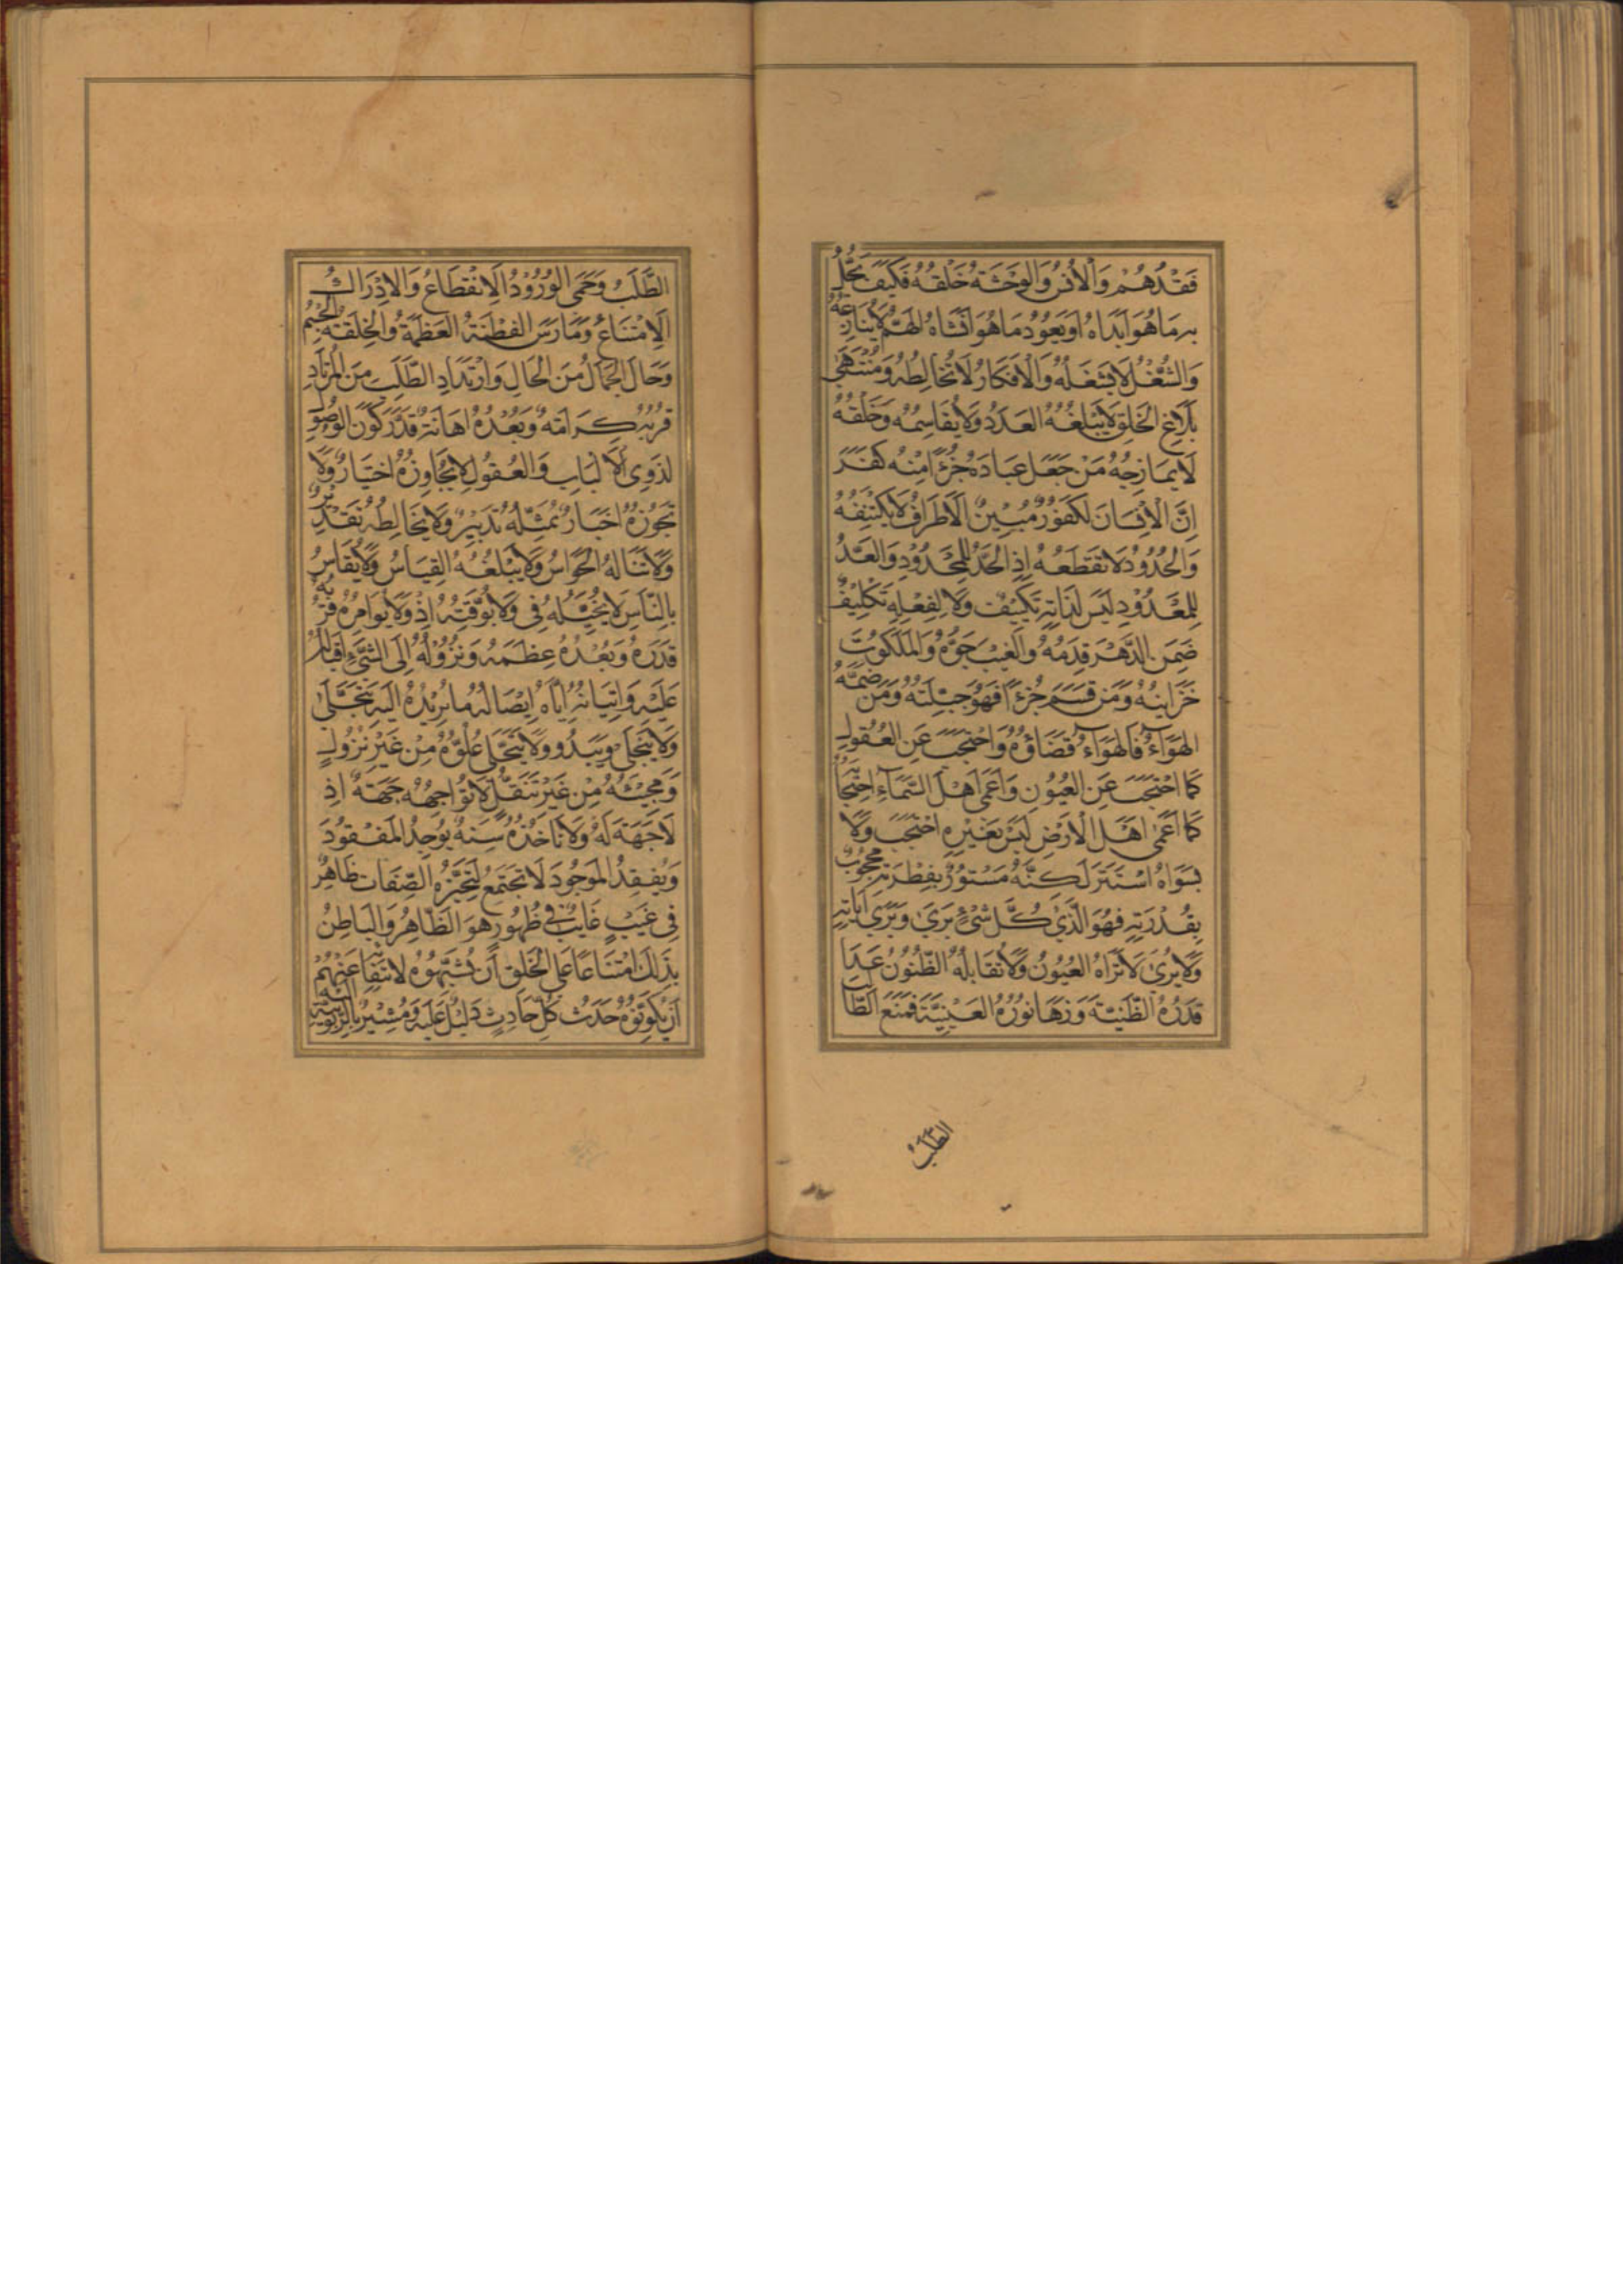 فَقْدُهُمْ وَالْأُنْسُ وَالوَحْشَةُ خَلْقُهُ فَكَيْفَ يَحُلُّ
بِهِ مَا هُوَ اَبْدَاهُ اَوْ يَعُودُ مَا هُوَ اَنْشَاهُ الهَمُّ لَا يُنَازِعُهُ
وَالشُّغْلُ لَا يَشْغَلُهُ وَالْاَفْكَارُ لَا تُخَالِطُهُ وَمُنْتَهَى
بَلَاغِ الخَلِقِ لَا يَبْلُغُهُ العَدَدُ وَلَا يُقَاسِمُهُ وَخَلْقُهُ
لَا يُمَازِجُهُ مَنْ جَعَلَ عِبَادَهُ جُزْءًا مِنْهُ كَفَرَ
اِنَّ الْاِنْسَانَ لَكَفُورٌ مُبِيْنٌ الْاَطْرَافُ لَا يَكْتَنِفُهُ
وَالْحُدُوْدُ لَا تَقْطَعُهُ اِذِ الْحَدُّ لِلْمَحْدُوْدِ وَالعَدُّ
لِلْمَعْدُوْدِ لَيْسَ لِذَاتِهِ تَكْيِيْفٌ وَلَا لِفِعْلِهِ تَكْلِيْفٌ
ضَمِنَ الدَّهْرَ قِدَمُهُ وَالغَيْبَ جَوُّهُ وَالمَلَكُوتُ
خَزَايِنُهُ وَمَنْ قَسَمَ جُزْءًا فَهُوَ جِبِلَتُهُ وَمَنْ ضَمَّهُ
الهَوَآءُ فَالهَوَآءُ فَضَاؤُهُ وَاحْتَجَبَ عَنِ العُقُولِ
كَمَا احْتَجَبَ عَنِ العُيُونِ وَاَعْمَى اَهْلَ السَّمَآءِ احْتِجَابُهُ
كَمَا اَعْمَى اَهْلَ الْاَرْضِ لَيْسَ بِغَيْرِهِ احْتَجَبَ وَلَا
بِسِوَاهُ اسْتَتَرَ لَكِنَّهُ مَسْتُوْرٌ بِفِطْرَتِهِ مَحْجُوبٌ
بِقُدْرَتِهِ فَهُوَ الَّذِي كُلَّ شَيْءٍ يَرَى وَيُرِي اٰيَاتِهِ
وَلَا يُرَى لَا تَرَاهُ العُيُونُ وَلَا تُقَابِلُهُ الظُّنُوْنُ عَدَا
قَدْرُهُ الظَّنِيَّةَ وَزَهَا نُوْرُهُ العَيْنِيَّةَ فَمَنَعَ الطَّالِبَ
الطَّلَبُ
الطَّلَبُ وَحَمَى الوُرُوْدُ الْاِنْقِطَاعُ وَالْاِدْرَاكُ
الْاِمْتِنَاعُ وَمَارَسَ الفِطْنَةُ العَظَمَةُ وَالخِلْقَةَ الجِسْمُ
وَحَالَ الجَمَالُ مِنَ الْحَالِ وَارْتِدَادِ الطَّلَبِ مِنَ الْمُرْتَادِ
قُرْبُهُ كَرَامَتُهُ وَبُعْدُهُ اِهَانَتُهُ قَدْرَ كَوْنِ الوُصُولِ
لِذَوِي الْاَلْبَابِ وَالعُقُولِ لَا يُجَاوِزُهُ اخْتِيَارٌ وَلَا
تَجُوْزُهُ اَخْبَارٌ يُمَثِّلُهُ تَدْبِيْرٌ وَلَا يُخَالِطُهُ تَقْدِيْرٌ
وَلَا تَنَالُهُ الْحَوَاسُ وَلَا يَبْلُغُهُ القِيَاسُ وَلَا يُقَاسُ
بِالنَّاسِ لَا يُحِيِّلُهُ فِي وَلَا يُوَقِّتُهُ اِذْ وَلَا يُوَامِرُهُ قُرْبُهُ
قَدَرُهُ وَبُعْدُهُ عِظَمُهُ وَنُزُوْلُهُ اِلَى الشَّيْءِ اِقْبَالُهُ
عَلَيْهِ وَاِتْيَانُهُ اِيَّاهُ اِيْصَالُهُ مَا يُرِيْدُهُ اِلَيْهِ يَتَجَلَّى
وَلَا يَنْجَلِي وَيَبْدُو وَلَا يَتَجَلَّى عُلُوُّهُ مِنْ غَيْرِ نُزُولٍ
وَمَجِيْئُهُ مِنْ غَيْرِ تَنَقُّلٍ لَا تُوَاجِهُهُ جِهَةٌ اِذْ
لَا جِهَةَ لَهُ وَلَا تَاخُذُهُ سِنَةٌ يُوْجِدُ المَفْقُوْدَ
وَيُفْقِدُ المَوْجُودَ لَا تَجْتَمِعُ لِتَحَيُّزِهِ الصِّفَاتُ ظَاهِرٌ
فِي غَيْبٍ غَايِبٌ فِي ظُهُورٍ هُوَ الظَّاهِرُ وَالبَاطِنُ
بِذَلِكَ امْتِنَاعًا عَلَى الْخَلِقِ اَنْ يُشْبِهُوْهُ لِانْتِفَائِهِ عَنْهُمْ
اَنْ يَكُوْنُوْهُ حَدَثُ كُلِّ حَادِثٍ دَلِيْلٌ عَلَيْهِ وَمُشِيْرٌ بِالرُّبُوْبِيَّةِ اِلَيْهِ